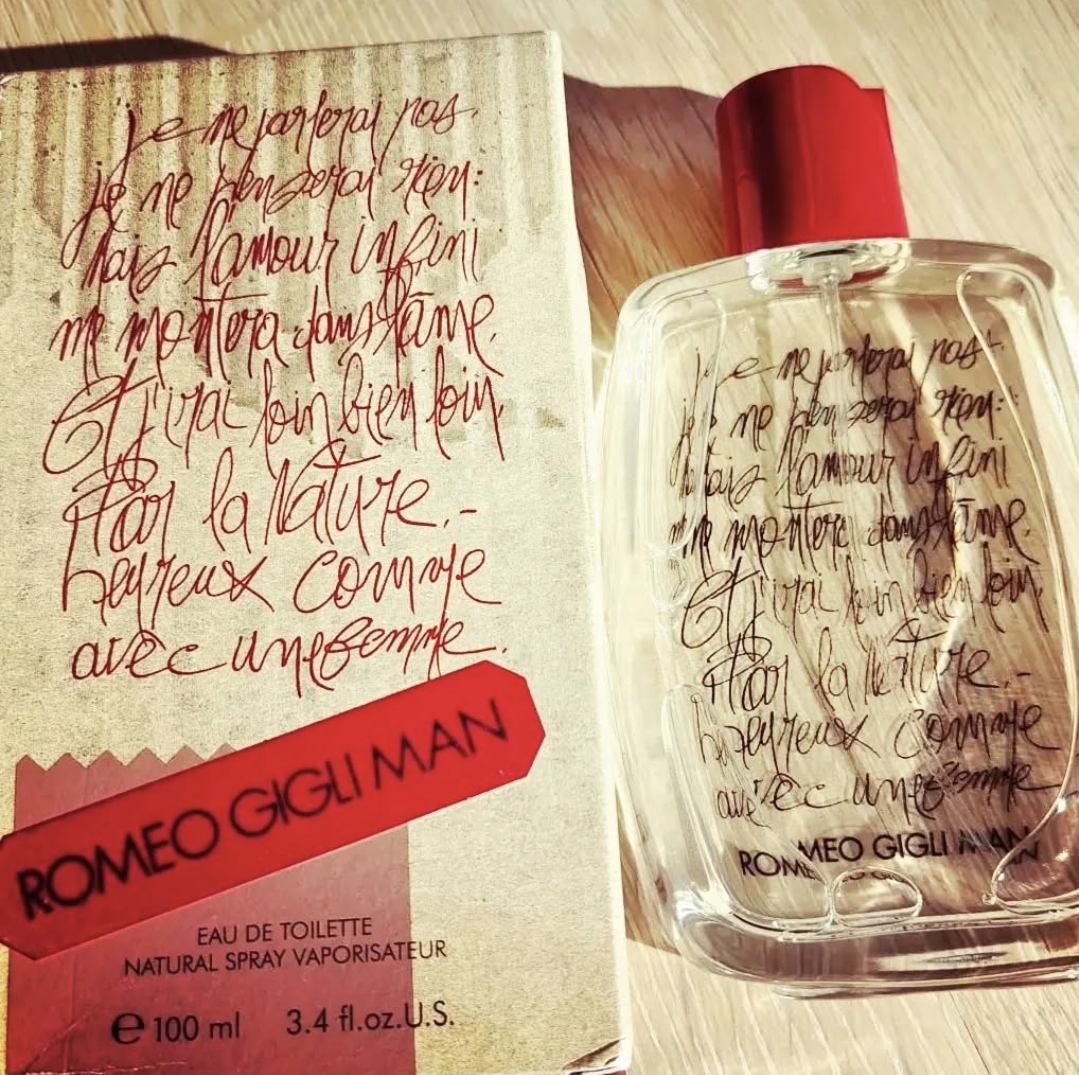 je ne parlerai pas.
je ne penserai rien:
Mais l'amour infini
me montera dans l'âme.
Et j'irai loin bien loin,
Par la Nature.-
heureux comme
avec une femme.
ROMEO GIGLI MAN
EAU DE TOILETTE
NATURAL SPRAY VAPORISATEUR
e 100 ml 3.4 fl.oz.U.S.
je ne parlerai pas.
je ne penserai rien:
Mais l'amour infini
me montera dans l'âme.
Et j'irai loin bien loin,
Par la Nature.-
heureux comme
avec une femme
ROMEO GIGLI MAN